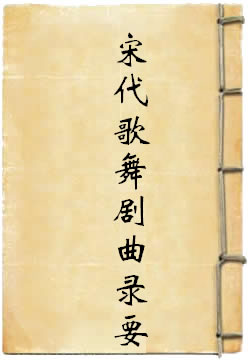 宋代歌舞剧曲录要